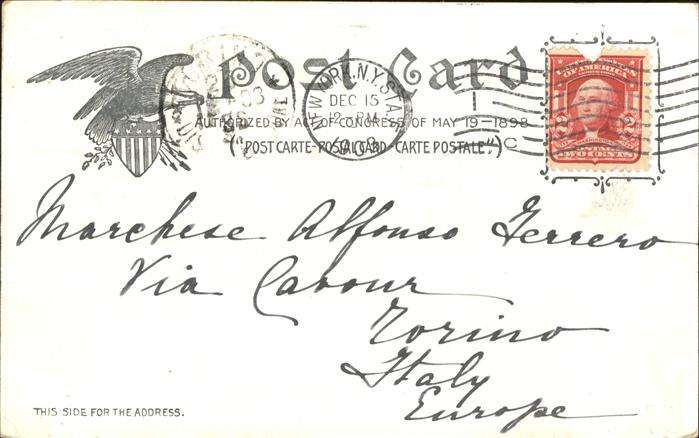 Post Card
NEW YORK, N.Y. STA.
DEC 15
AUTHORIZED BY ACT OF CONGRESS OF MAY 19-1898
("POST CARTE-POSTAL CARD-CARTE POSTALE".)
C
OF AMERICA
2 2
TWO CENTS
Marchese Alfonso Ferrero
Via Cavour
Torino
Italy
Europe
THIS SIDE FOR THE ADDRESS.